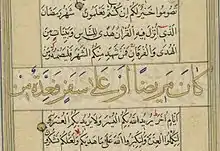 تَصُومُوا خَيْرٌ لَكُمْ اِنْ كُنْتُمْ تَعْلَمُونَ شَهْرُ رَمَضَانَ
الَّذِى اُنْزِلَ فِيهِ الْقُرْاٰنُ هُدًى لِلنَّاسِ وَبَيِّنَاتٍ مِنَ
الْهُدٰى وَالْفُرْقَانِ فَمَنْ شَهِدَ مِنْكُمُ الشَّهْرَ فَلْيَصُمْهُ وَمَنْ
كَانَ مَرِيضًا اَوْ عَلٰى سَفَرٍ فَعِدَّةٌ مِنْ
اَيَّامٍ اُخَرَ يُرِيدُ اللّٰهُ بِكُمُ الْيُسْرَ وَلَا يُرِيدُ بِكُمُ الْعُسْرَ وَ
لِتُكْمِلُوا الْعِدَّةَ وَلِتُكَبِّرُوا اللّٰهَ عَلٰى مَا هَدٰيكُمْ وَلَعَلَّكُمْ